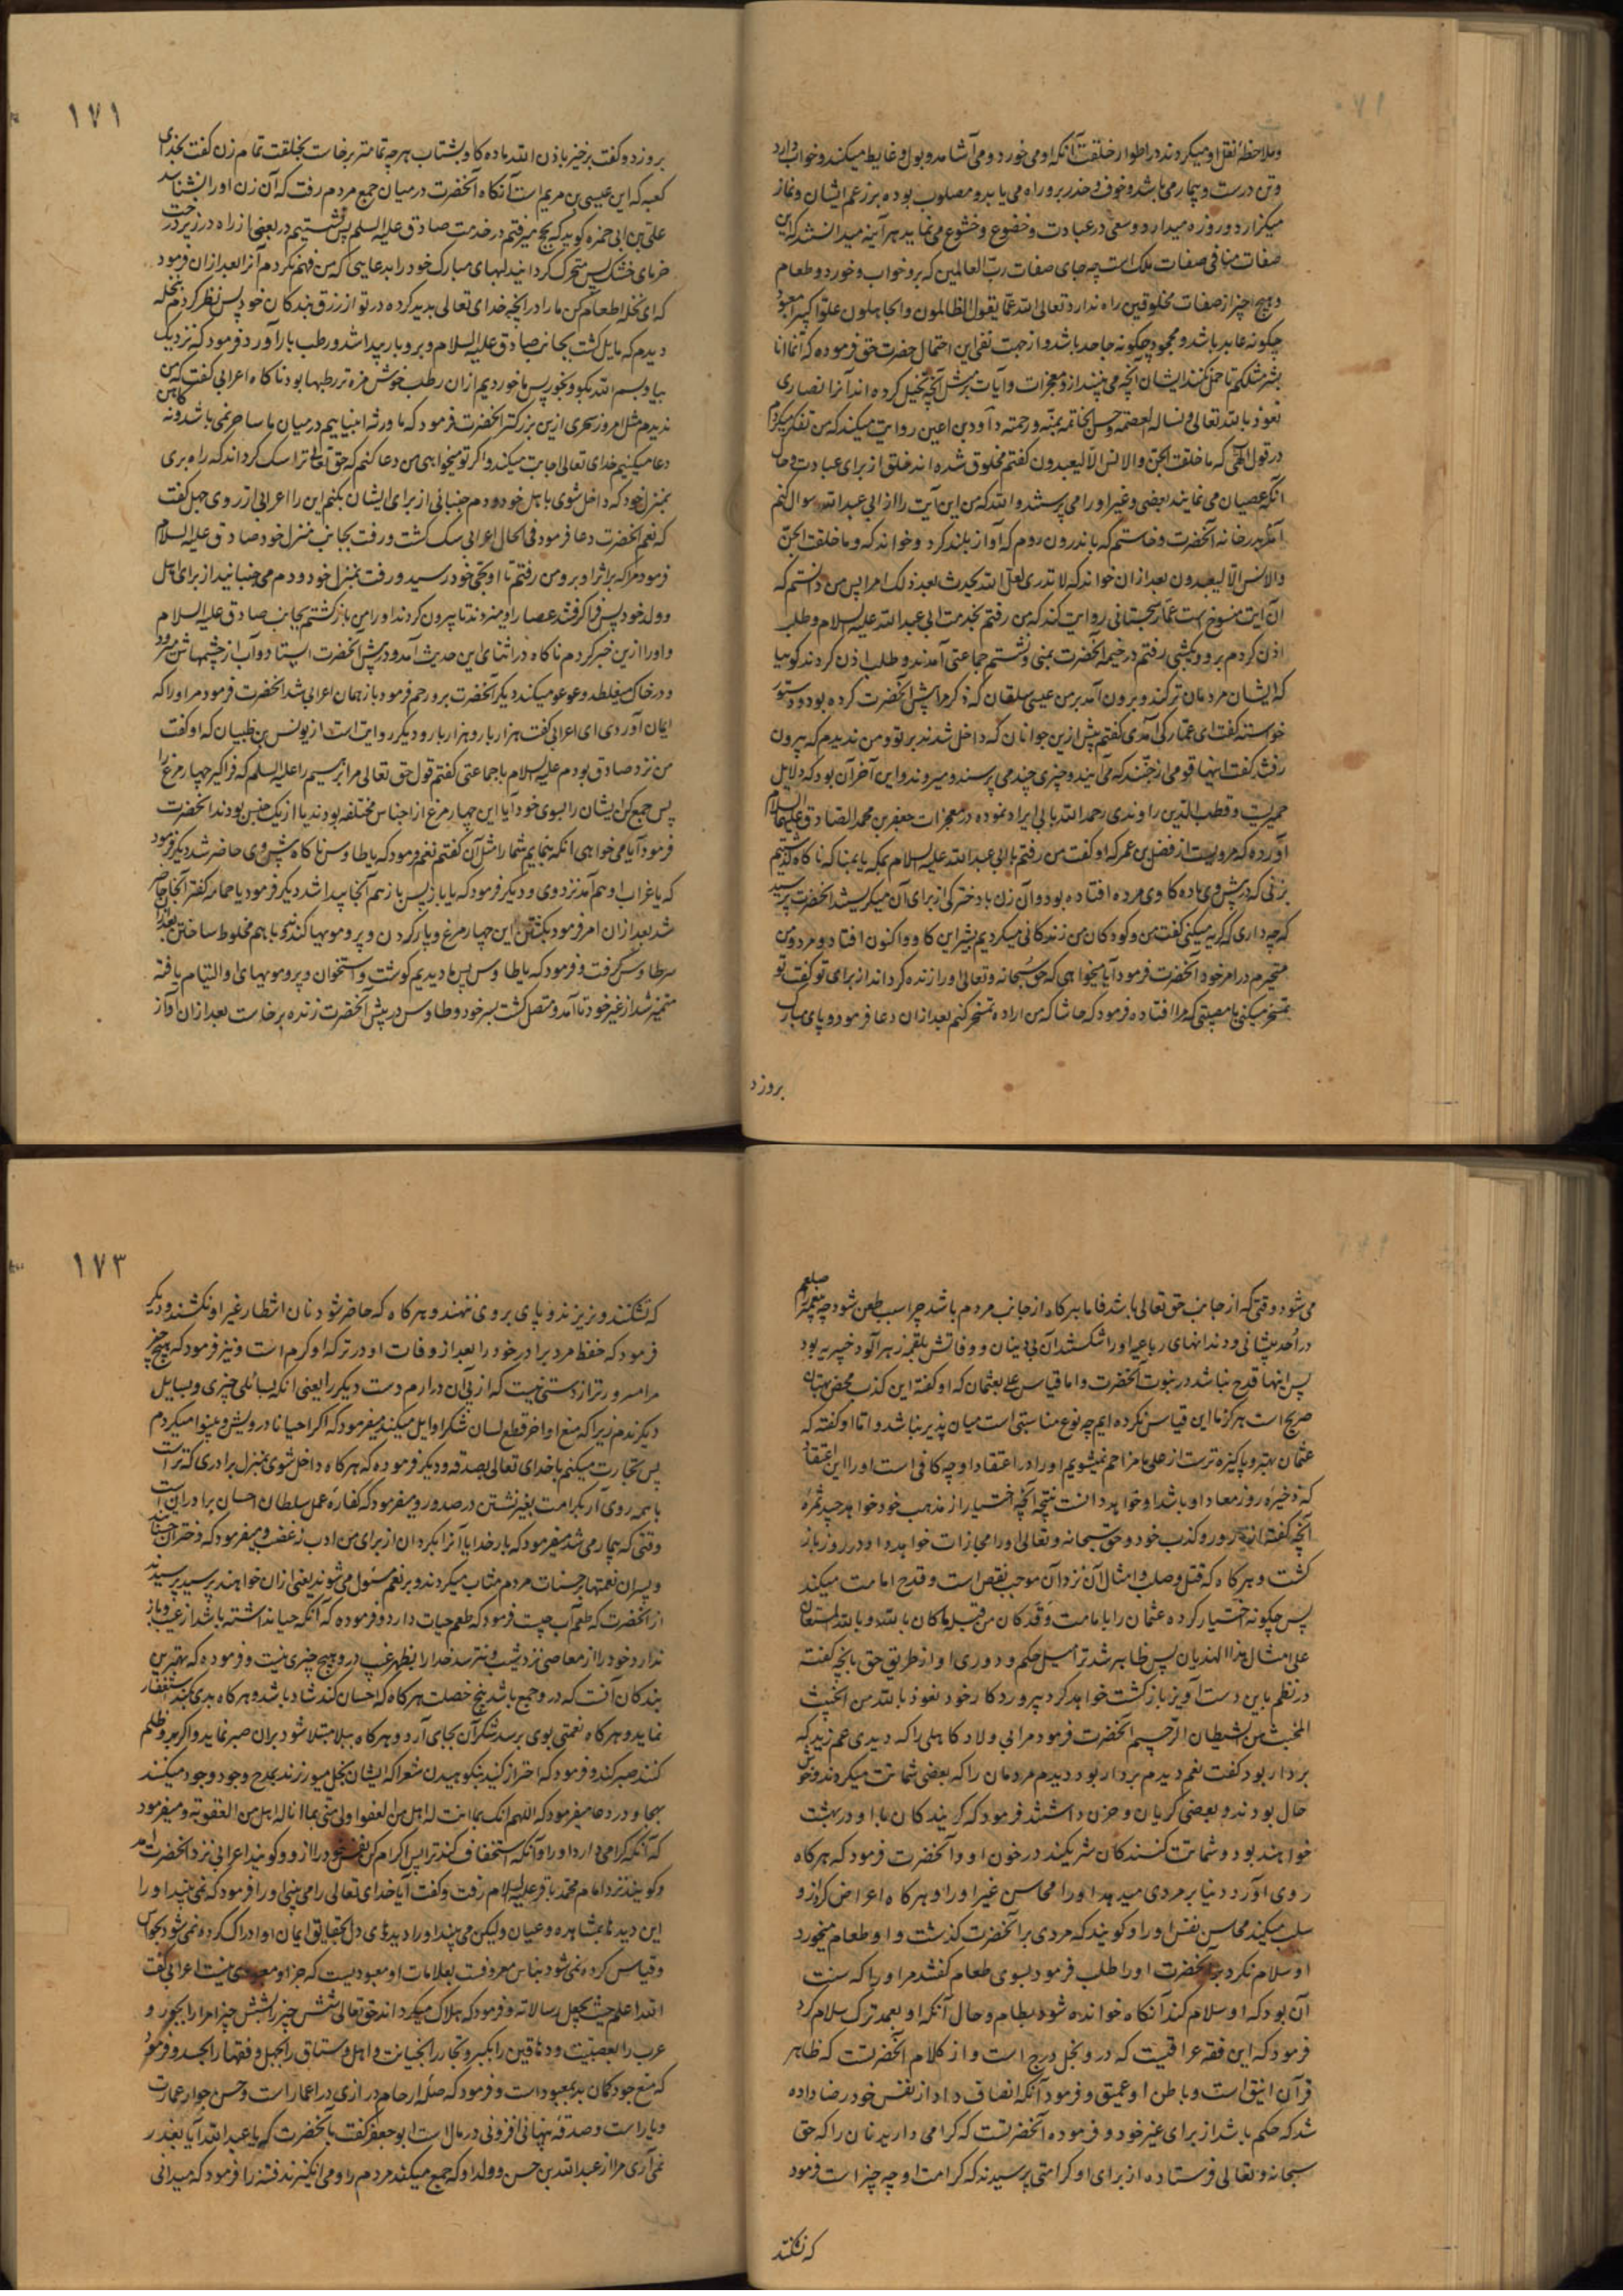 وملاحظهٔ نقل او میکروند در اطوار خلقت آنکه او می خورد و می آشامد و بول و غایط میکند و خواب دارد
و تن درست و بیمار می باشد و خوف و حذر برو راه می یابد و مصلوب بوده بر زعم ایشان و نماز
میگزارد و روزه میدارد و سعی در عبادت و خضوع و خشوع می نماید هر آینه میدانستند که این
صفات منافی صفات ملک است چه جای صفات رب العالمین که برو خواب و خورد و طعام
و هیچ چیز از صفات مخلوقین راه ندارد تعالی الله عما یقول الظالمون والجاهلون علوا کبیرا معبود
چگونه عابد باشد و محمود چگونه حامد باشد و از جهت نفی این احتمال حضرت حق فرموده که انما انا
بشر مثلکم تا حمل نکنند ایشان آنچه می بینند از و معجزات و آیات بر مثل آنچه تخیل کرده اند آنرا نصاری
نعوذ بالله تعالی و نساله العصمة وحسن الخاتمه بمنه ورحمته داود بن اعین روایت میکند که من تفکر میکردم
در قول الهی که ما خلقت الجن والانس الا لیعبدون گفتم مخلوق شده اند خلق از برای عبادت و حال
آنکه عصیان می نمایند بعضی و غیر او را می پرستند و الله که من این آیت را از ابی عبدالله سوال کنم
آمدم بدر خانه آنحضرت و خاستم که باندرون روم که آواز بلند کرد و خواند که وما خلقت الجن
والانس الا لیعبدون بعد از ان خواند که لا تدری لعل الله یحدث بعد ذلک امرا پس من دانستم که
آن آیت منسوخ است عمار سجستانی روایت کند که من رفتم بخدمت ابی عبدالله علیه السلام و طلب
اذن کردم برو و یکشبی رفتم در خیمه آنحضرت بمنی و نشستم جماعتی آمدند و طلب اذن کردند گوییا
که ایشان مردمان ترکند و برون آمد بر من عیسی سلقان که ذکر مرا پیش آنحضرت کرده بود و دستور
خواسته گفت ای عمار کی آمدی گفتم پیش ازین جوانان که داخل شدند بر تو و من ندیدم که بیرون
رفتند گفت اینها قومی از جنند که می آیند و چیزی چند می پرسند و میروند و این آخر آن بود که دلایل
حمیریست و قطب الدین راوندی رحمه الله بابی ایراد نموده در معجزات جعفر بن محمد الصادق علیهما السلام
آورده که مرویست از مفضل بن عمر که او گفت من رفتم با ابی عبدالله علیه السلام بمکه یا بمنا که ناگاه گذشتیم
بزنی که در پیش وی ماده گاوی مرده افتاده بود و آن زن با دخترکی از برای آن میگریستند آنحضرت پرسید
که چه داری که گریه میکنی گفت من و کودکان من زندگانی میکردیم بشیر این گاو و اکنون افتاد و مرد و من
متحیرم در امر خود آنحضرت فرمود آیا میخواهی که حق سبحانه و تعالی او را زنده گرداند از برای تو گفت تو
تمسخر میکنی با مصیبتی که مرا افتاده فرمود که حاشا که من اراده تمسخر کنم بعد از ان دعا فرمود و پای مبارک
بروزد
١٧١
بروزد و گفت برخیز باذن الله ماده گاو بشتاب هر چه تمامتر برخاست بخلقت تمام زن گفت بخدای
کعبه که این عیسی بن مریم است آنگاه آنحضرت در میان جمع مردم رفت که آن زن او را نشناسد
علی بن ابی حمزه گوید که بحج میرفتم در خدمت صادق علیه السلم پس نشستیم در بعضی از راه در زیر درخت
خرمای خشک پس متحرک گردانید لبهای مبارک خود را بدعایی که من فهم نکردم آنرا بعد از ان فرمود
که ای نخله اطعام کن ما را در آنچه خدای تعالی پدید کرده در تو از رزق بندگان خود پس نظر کردم بنخله
دیدم که مایل گشت بجانب صادق علیه السلام و برو بار پیدا شد و رطب بار آورد فرمود که نزدیک
بیا و بسم الله بگو و بخور پس ما خوردیم ازان رطب خوش مزه تر رطبها بود ناگاه اعرابی گفت که من
ندیدم مثل امروز سحری ازین بزرگتر آنحضرت فرمود که ما ورثه انبیاییم در میان ما ساحر نمی باشد و نه کاهن
دعا میکنیم خدای تعالی اجابت میکند و اگر تو میخواهی من دعا کنم که حق تعالی ترا سگ گرداند که راه بری
بمنزل خود که داخل شوی باهل خود و دم جنبانی از برای ایشان بکنم این را اعرابی از روی جهل گفت
که نعم آنحضرت دعا فرمود فی الحال اعرابی سگ گشت و رفت بجانب منزل خود صادق علیه السلام
فرمود مرا که بر اثر او برو من رفتم تا او بحی خود رسید و رفت بمنزل خود و دم می جنبانید از برای اهل
و ولد خود پس فرا گرفتند عصا را و میزدند تا بیرون کردند او را من بازگشتم بجانب صادق علیه السلام
و او را ازین خبر کردم ناگاه در اثنای این حدیث آمد و در پیش آنحضرت ایستاد و آب از چشمهاش میرود
و در خاک میغلطد و عوعو میکند دیگر آنحضرت برو رحم فرمود باز همان اعرابی شد آنحضرت فرمود مر او را که
ایمان آوردی ای اعرابی گفت هزار بار و هزار بار و دیگر روایت است از یونس بن ظبیان که او گفت
من نزد صادق بودم علیه السلام با جماعتی گفتم قول حق تعالی مر ابرهیم را علیه السلم که فرا گیر چهار مرغ را
پس جمع کن ایشان را بسوی خود آیا این چهار مرغ از اجناس مختلفه بودند یا از یک جنس بودند آنحضرت
فرمود آیا می خواهی آنکه بنمایم شما را مثل آن گفتم نعم فرمود که یا طاوس ناگاه پیش وی حاضر شد دیگر فرمود
که یا غراب او هم آمد نزد وی و دیگر فرمود که یا باز پس باز هم آنجا پیدا شد دیگر فرمود یا حمامه کفتر آنجا حاضر
شد بعد از ان امر فرمود بکشتن این چهار مرغ و پاره کردن و پر و مویها کندن و با هم مخلوط ساختن بعد از ان
سر طاوس گرفت و فرمود که یا طاوس پس ما دیدیم گوشت و استخوان و پر و مویهای او التیام یافته
متمیز شد از غیر خود تا آمد و متصل گشت بسر خود و طاوس در پیش آنحضرت زنده برخاست بعد از ان آواز
می شود وقتی که از جانب حق تعالی باشد فاما هر گاه از جانب مردم باشد چرا سبب طعن شود چه پیغمبر را صلعم
در احد پیشانی و دندانهای رباعیه او را شکستند آن بی دینان و وفاتش بلقمه زهر آلود خیبریه بود
پس اینها قدح نباشد در نبوت آنحضرت و اما قیاس علی بعثمان که او گفته این کذب محض بهتان
صریح است هرگز ما این قیاس نکرده ایم چه نوع مناسبتی است میان پذیر نباشد و اما او گفته که
عثمان بهتر و پاکیزه ترست از علی ما مزاحم نمیشویم او را در اعتقاد او چه کافی است او را این اعتقاد
که ذخیره روز معاد او باشد او خواهد دانست نتیجه آنچه اختیار از مذهب خود خواهد چید ثمرهٔ
آنچه گفته از زور و کذب خود و حق سبحانه و تعالی او را مجازات خواهد داد در روز باز
گشت و هر گاه که قتل و صلب و امثال آن نزد آن موجب نقص است و قدح امامت میکند
پس چگونه اختیار کرده عثمان را بامامت وقد کان من قتله ما کان بالله و بالله المستعان
علی امثال هذا الهذیان پس ظاهر شد ترا میل حکم و دوری او از طریق حق بآنچه گفته
در نظم باین دست آویز بازگشت خواهد کرد بپروردگار خود نعوذ بالله من الخبیث
المخبث من الشیطان الرجیم آنحضرت فرمود مر ابی ولاد کاهلی را که دیدی عم زید که
بردار بود گفت نعم دیدم بردار بود دیدم مردمان را که بعضی شماتت میکروند و خوش
حال بودند و بعضی گریان و حزن داشتند فرمود که گریندگان با او در بهشت
خواهند بود و شماتت کنندگان شریکند در خون او و آنحضرت فرمود که هر گاه
روی آورد دنیا بر مردی میدهد او را محاسن غیر او را و هر گاه اعراض کرد ازو
سلب میکند محاسن نفس او را و گویند که مردی بر آنحضرت گذشت و او طعام میخورد
او سلام نکرد بر آنحضرت او را طلب فرمود بسوی طعام گفتند مر او را که سنت
آن بود که او سلام کند آنگاه خوانده شود بطعام و حال آنکه او بعمد ترک سلام کرد
فرمود که این فقه عراقیست که درو بخل درج است و از کلام آنحضرتست که ظاهر
قرآن انیق است و باطن او عمیق و فرمود آنکه انصاف داد از نفس خود رضا داده
شد که حکم باشد از برای غیر خود و فرموده آنحضرتست که گرامی دارید نان را که حق
سبحانه و تعالی فرستاده از برای او کرامتی پرسیدند که کرامت او چه چیز است فرمود
که نشکنند
١٧٣
که نشکنند و نریزند و پای بروی ننهند و هر گاه که حاضر شود نان انتظار غیر او نکشند و دیگر
فرمود که حفظ مرد برادر خود را بعد از وفات او در ترکه او کرم است و نیز فرمود که هیچ چیز
مرا مسرورتر از دستی نیست که از پی آن درارم دست دیگر را یعنی آنکه بسائلی چیزی و بسایل
دیگر ندهم زیرا که منع اواخر قطع لسان شکر اوایل میکند میفرمود که اگر احیانا درویش و بینوا میگردم
پس تجارت میکنم با خدای تعالی بصدقه و دیگر فرموده که هر گاه داخل شوی بمنزل برادری که تراست
با همه روی آر بکرامت بغیر نشستن در صدر و میفرمود که کفاره عمل سلطان احسان برادران است
وقتی که بیمار می شد میفرمود که بار خدایا آنرا بگردان از برای من ادب نه غضب و میفرمود که دختران حسناتند
و پسران نعمتها بر حسنات مردم مثاب میگردند و بر نعم مسئول می شوند یعنی ازان خواهند پرسید پرسیدند
از آنحضرت که طعم آب چیست فرمود که طعم حیات دارد و فرموده که آنکه حیا نداشته باشد از عیب و باز
ندارد خود را از معاصی نزد شیب و نترسد خدا را بظهر غیب درو هیچ چیزی نیست و فرموده که بهترین
بندگان آنست که درو جمع باشد پنج خصلت هر گاه که احسان کند شاد باشد و هر گاه بدی کند استغفار
نماید و هر گاه نعمتی بوی برسد شکر آن بجای آرد و هر گاه ببلا مبتلا شود بران صبر نماید و اگر برو ظلم
کنند صبر کند و فرمود که احتراز کنید بنکوهیدن شعرا که ایشان بخل میورزند بمدح وجود وجود میکنند
بهجا و در دعا میفرمود که اللهم انک بما انت له اهل من العفو اولی منی بما انا له اهل من العقوبه و میفرمود
که آنکه گرامی دارد او را و آنکه استخفاف کند ترا پس اکرام کن نفس خود را ازو و گویند اعرابی نزد آنحضرت آمد
و گویند نزد امام محمد باقر علیه السلام رفت و گفت آیا خدای تعالی را می بینی او را فرمود که نمی بینید او را
این دیدها بمشاهده و عیان ولیکن می بیند او را دیدهای دل بحقایق ایمان او ادراک کرده نمی شود بحواس
و قیاس کرده نمی شود بناس معروفست بعلامات او معبودیست که جز او معبودی نیست اعرابی گفت
الله اعلم حیث یجعل رسالاته و فرمود که هلاک میگرداند حق تعالی شش چیز را بشش چیز امرا را بجور و
عرب را بعصبیت و دهاقین را بکبر و تجار را بخیانت و اهل رستاق را بجهل و فقها را بحسد و فرمود
که منع جود گمان بد بمعبود است و فرمود که صلهٔ ارحام درازی در اعمار است و حسن جوار عمارت
دیار است و صدقهٔ پنهانی افزونی در مال است ابو جعفر گفت بآنحضرت که یا عبدالله آیا بعذر
نمی آری مرا از عبدالله بن حسن و ولد او که جمع میکنند مردم را و می انگیزند فتنه را فرمود که میدانی